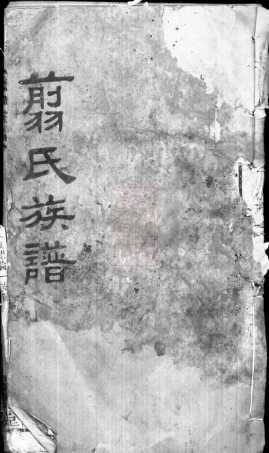 翦氏族譜